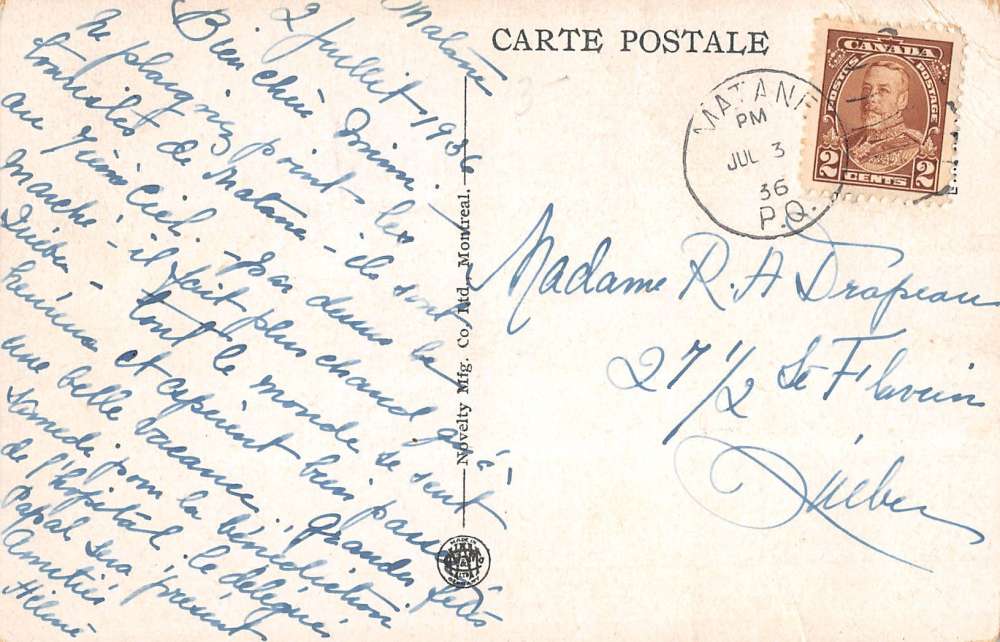 Matane
2 Juillet, 1936
Bien chère Mimi.
Ne plaignez point les
touristes de Matane - ils sont
au 7ième Ciel. - par dessus le
marché - il fait plus chaud qu'à
Québec - tout le monde se sent
heureux et espèrent bien passer
une belle vacance. Grandes fêtes
samedi pour la bénédiction
de l'hôpital. le délégué
Papal sera présent
Amitiés
Hélène
CARTE POSTALE
Novelty Mfg. Co. Ltd., Montreal.
MADE IN
CANADA POSTES POSTAGE
2 CENTS 2
MATANE
PM
JUL 3
36
P.Q.
Madame R. A Drapeau
27 1/2 St Flavien
Québec